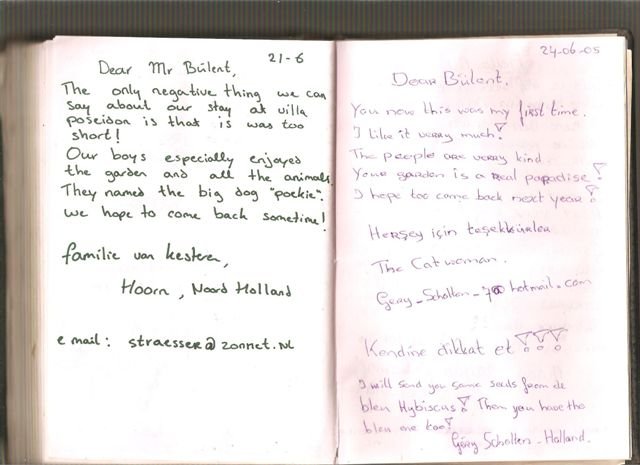 21-6
Dear Mr Bülent,
The only negative thing we can
say about our stay at villa
poseidon is that is was too
short!
Our boys especially enjoyed
the garden and all the animals.
They named the big dog "poekie".
we hope to come back sometime!
familie van kesteren,
Hoorn, Noord Holland
e mail: straesser@zonnet.nl
24-06-05
Dear Bülent.
You now this was my first time.
I like it verry much!
The people are verry kind.
Your garden is a real paradise!
I hope too come back next year!
Herşey için teşekkürler
The Catwoman.
Gery_Scholten_7@hotmail.com
Kendine dikkat et!!!
I will send you some seeds from de
bleu Hybiscus! Then you have the
bleu one too!
Gery Scholten - Holland.